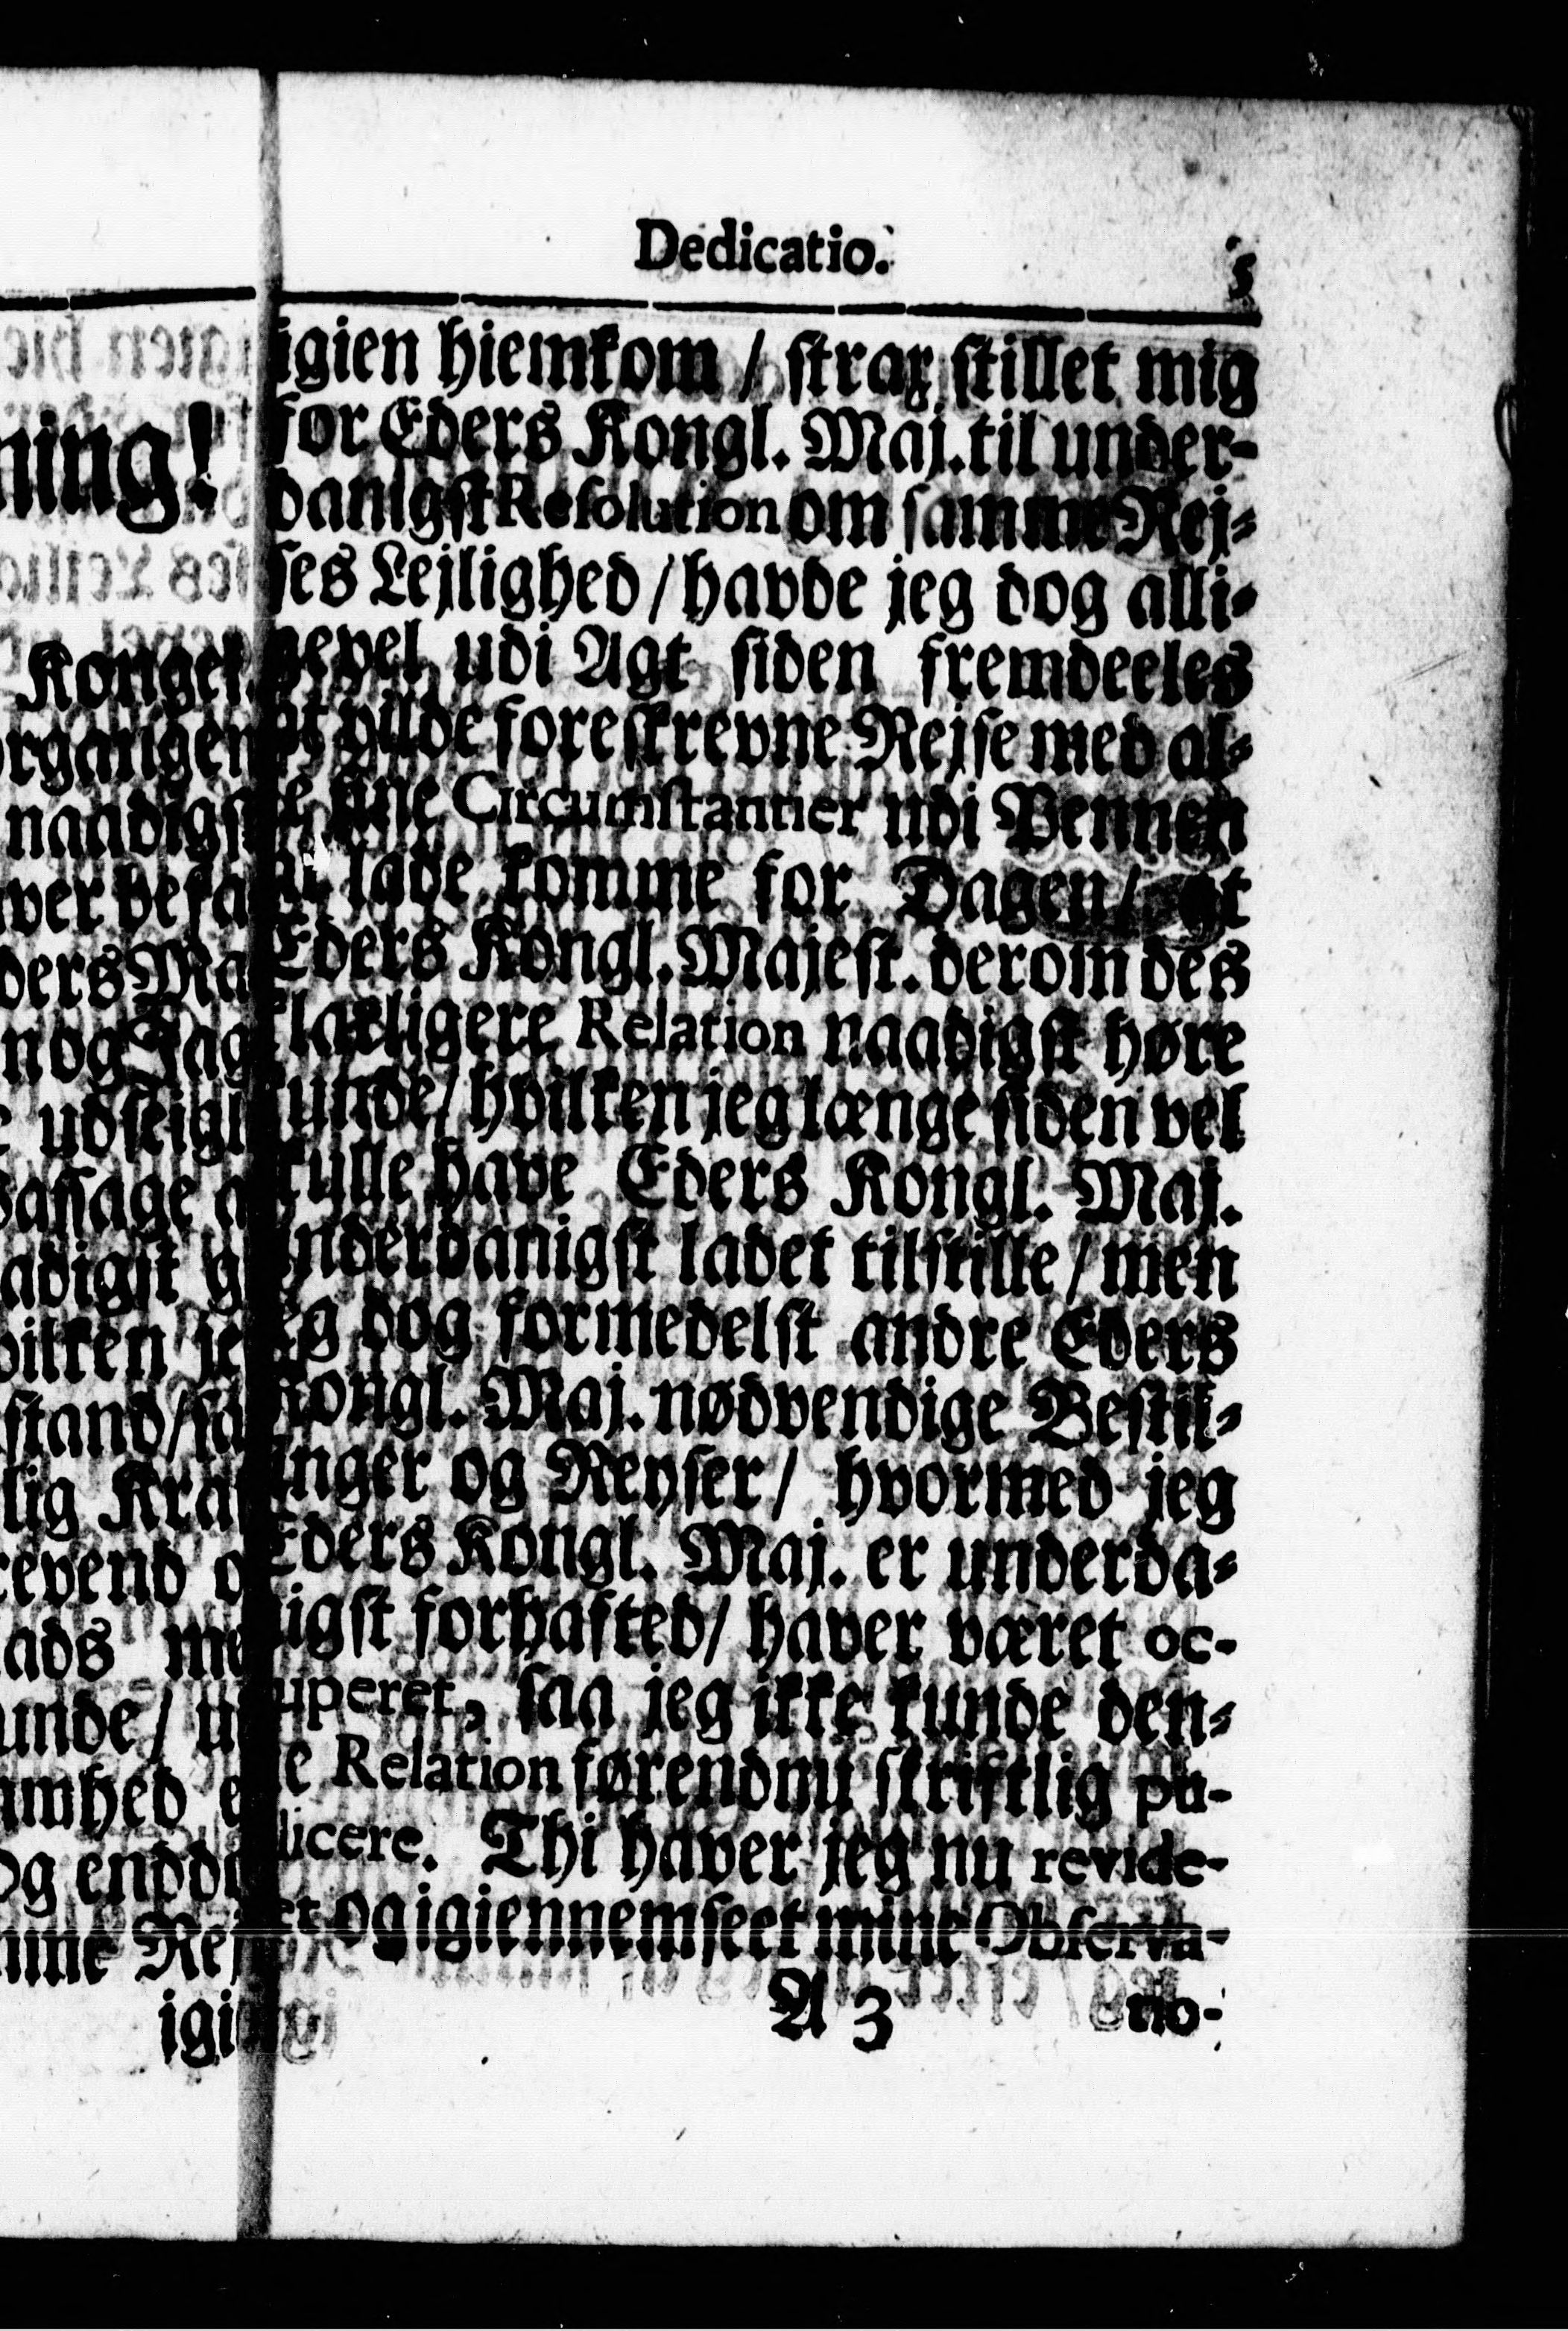 Dedicatio. 5
igien hiemkom / strax stillet mig
for Eders Kongl. Maj. til under-
danigst Resolution om samme Rej-
ses Lejlighed / havde jeg dog alli-
gevel udi Agt siden fremdeeles
at vilde foreskrevne Rejse med al-
le sine Circumstantier udi Pennen
at lade komme for Dagen / at
Eders Kongl. Majest. derom des
klarligere Relation naadigst høre
kunde / hvilken jeg længe siden vel
skulle have Eders Kongl. Maj.
underdanigst ladet tilstille / men
jeg dog formedelst andre Eders
Kongl. Maj. nødvendige Bestil-
linger og Reyser / hvormed jeg
Eders Kongl. Maj. er underda-
nigst forhafted / haver været oc-
cuperet, saa jeg ikke kunde den-
ne Relation førend nu skriftlig pu-
blicere. Thi haver jeg nu revide-
ret og igiennemseet mine Observa-
A 3 tio-
ning!
Kongel.
naadigst
nog Jag
udseigl
adigst
hvilken je
stand / sa
lig Kra
revend o
ads me
unde / u
amhed e
og endd
mine Rej
igi